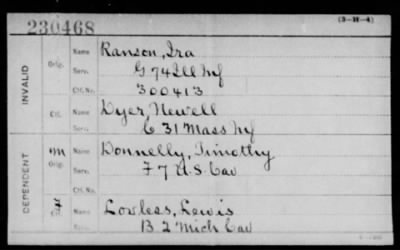 (3-M-4)
230468
INVALID
Orig. Name Ranson, Ira
Serv. G 74 Ill Inf
Ctf. No. 300413
Ctf. Name Dyer, Newell
Serv. C 31 Mass Inf
DEPENDENT
m Orig. Name Donnelly, Timothy
Serv. F 7 U.S. Cav
Ctf. No.
Name Lowless, Lewis
Serv. B 2 Mich Cav